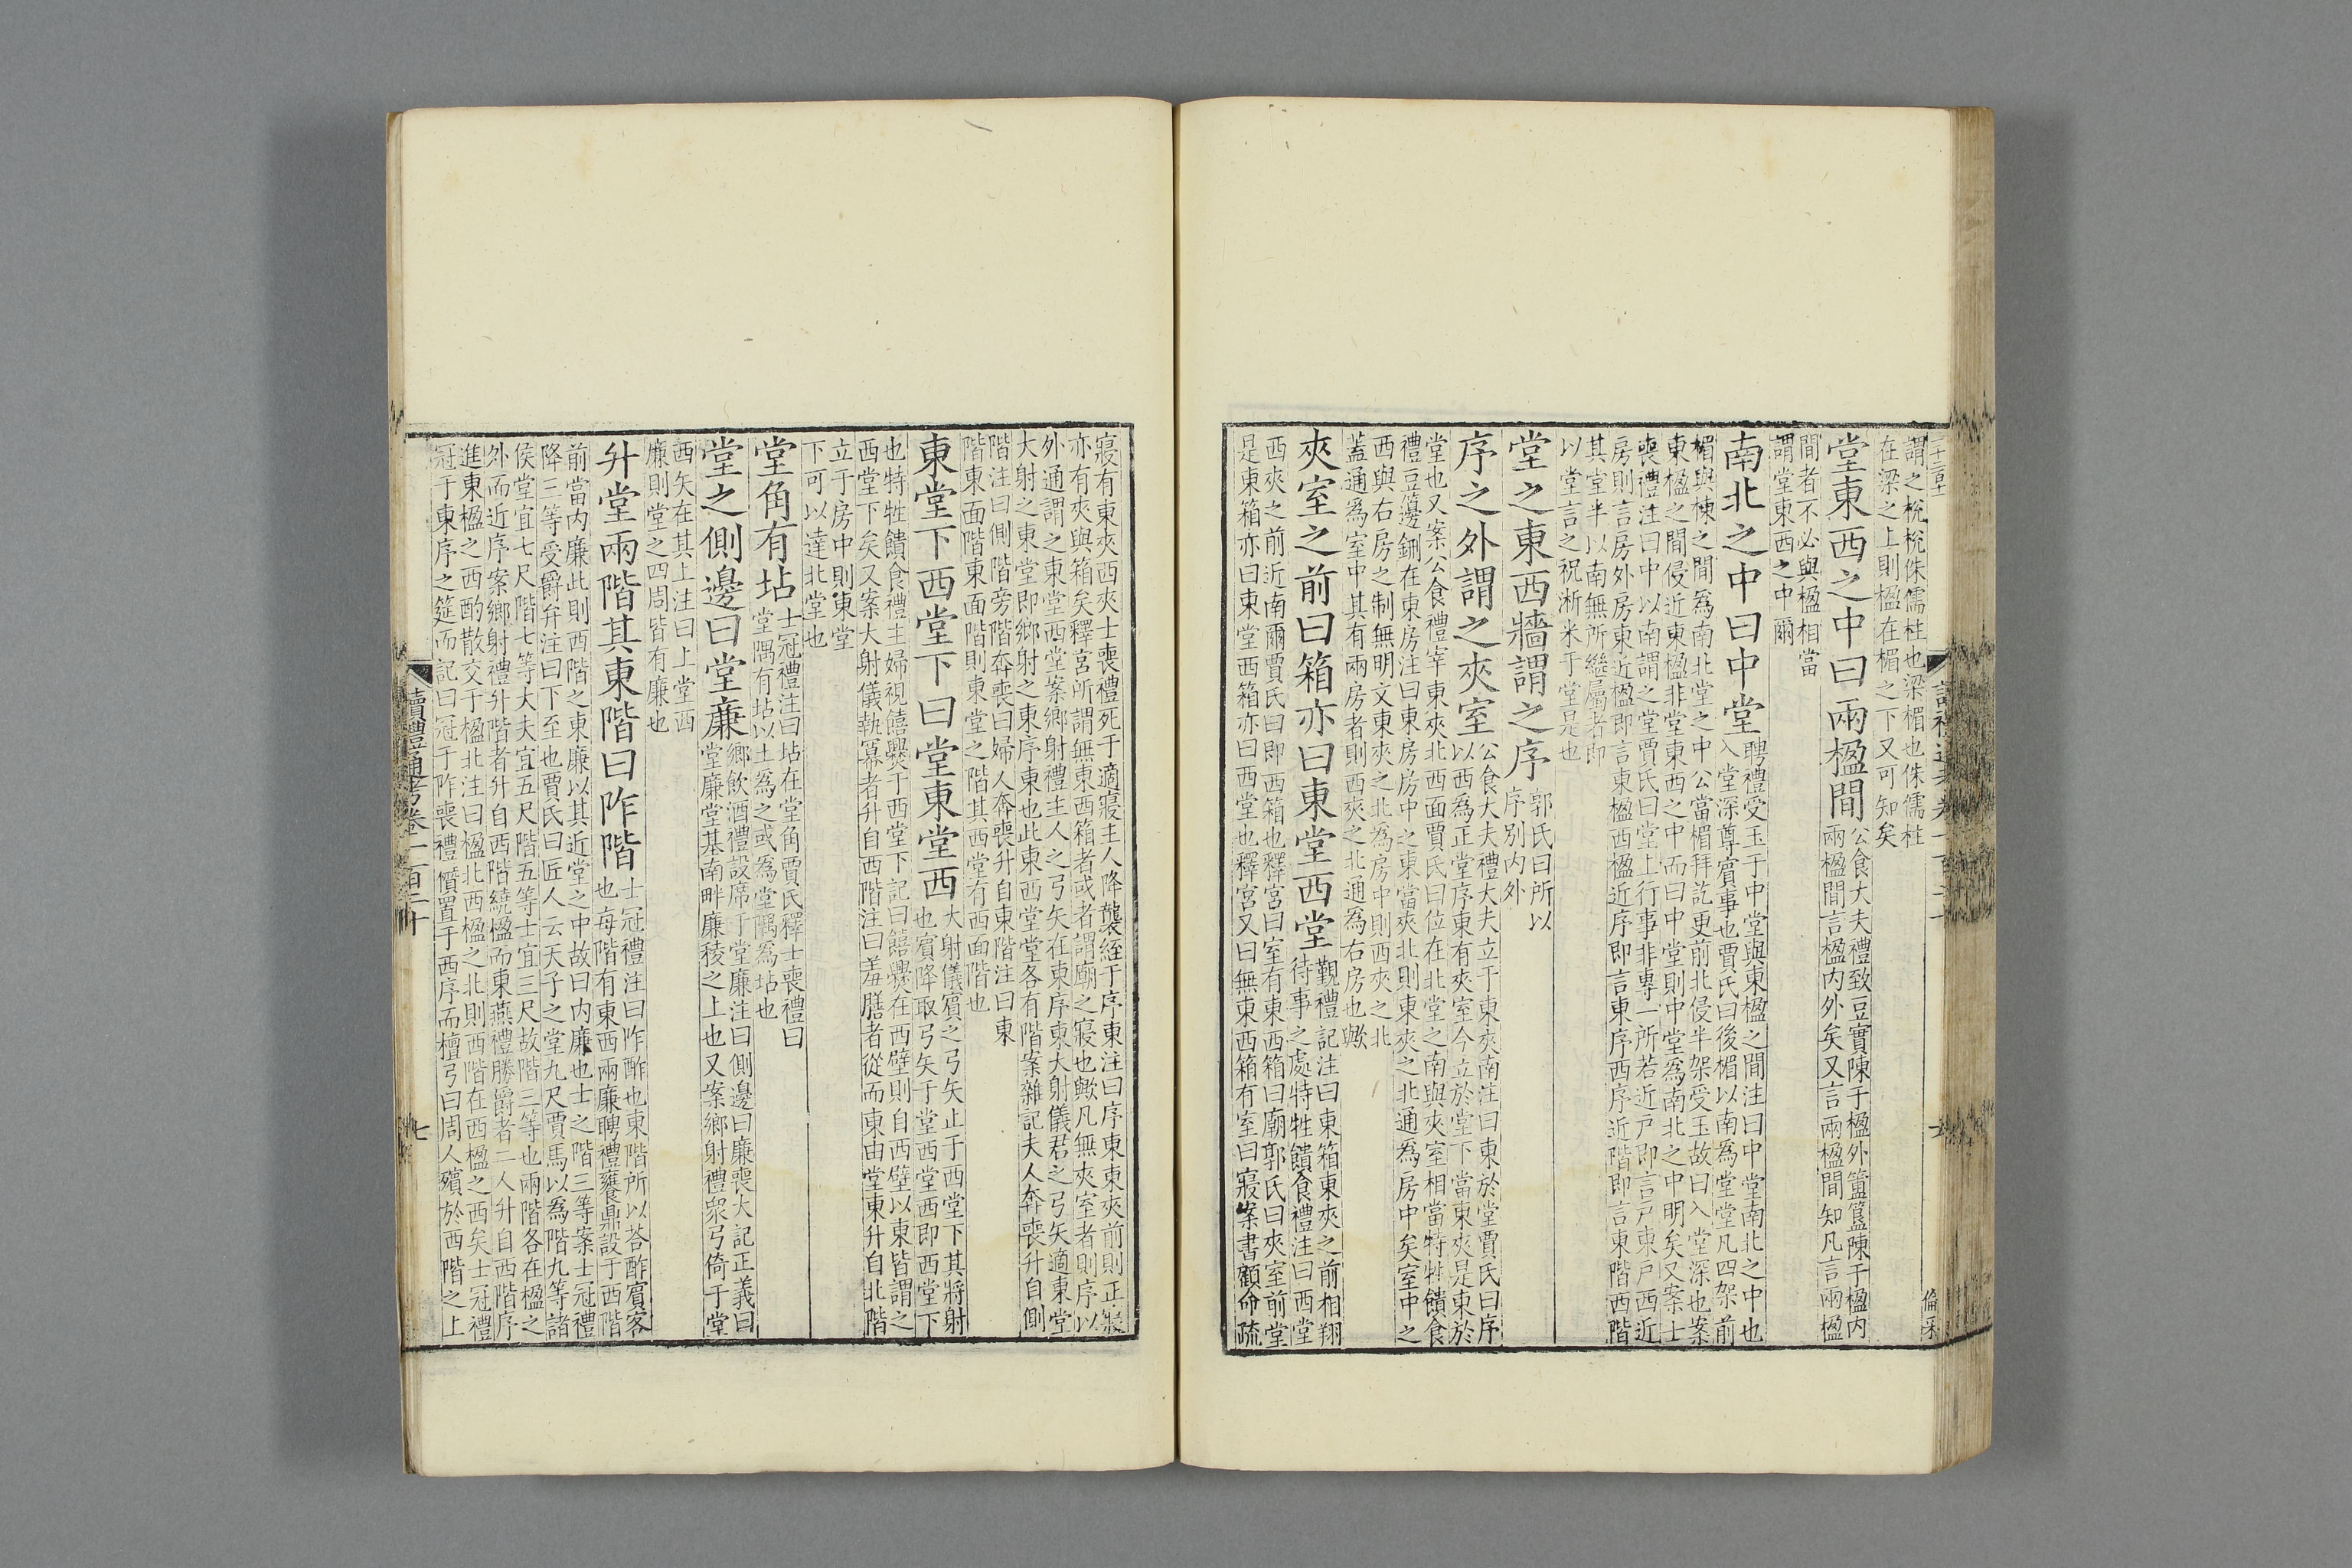 謂之梲梲侏儒柱也梁楣也侏儒柱
在梁之上則楹在楣之下又可知矣
堂東西之中曰兩楹間
公食大夫禮致豆實陳于楹外簠簋陳于楹内
兩楹間言楹内外矣又言兩楹間知凡言兩楹
間者不必與楹相當
謂堂東西之中爾
南北之中曰中堂
聘禮受玉于中堂與東楹之間注曰中堂南北之中也
入堂深尊賓事也賈氏曰後楣以南爲堂堂凡四架前
楣與棟之間爲南北堂之中公當楣拜訖更前北侵半架受玉故曰入堂深也案
東楹之間侵近東楹非堂東西之中而曰中堂則中堂爲南北之中明矣又案士
喪禮注曰中以南謂之堂賈氏曰堂上行事非專一所若近戶即言戶東戶西近
房則言房外房東近楹即言東楹西楹近序即言東序西序近階即言東階西階
其堂半以南無所繼屬者即
以堂言之祝淅米于堂是也
堂之東西牆謂之序
郭氏曰所以
序別内外
序之外謂之夾室
公食大夫禮大夫立于東夾南注曰東於堂賈氏曰序
以西爲正堂序東有夾室今立於堂下當東夾是東於
堂也又案公食禮宰東夾北西面賈氏曰位在北堂之南與夾室相當特牲饋食
禮豆籩鉶在東房注曰東房房中之東當夾北則東夾之北通爲房中矣室中之
西與右房之制無明文東夾之北爲房中則西夾之北
蓋通爲室中其有兩房者則西夾之北通爲右房也歟
夾室之前曰箱亦曰東堂西堂
覲禮記注曰東箱東夾之前相翔
待事之處特牲饋食禮注曰西堂
西夾之前近南爾賈氏曰即西箱也釋宮曰室有東西箱曰廟郭氏曰夾室前堂
是東箱亦曰東堂西箱亦曰西堂也釋宮又曰無東西箱有室曰寢案書顧命疏
寢有東夾西夾士喪禮死于適寢主人降襲絰于序東注曰序東東夾前則正寢
亦有夾與箱矣釋宮所謂無東西箱者或者謂廟之寢也歟凡無夾室者則序以
外通謂之東堂西堂案鄉射禮主人之弓矢在東序東大射儀君之弓矢適東堂
大射之東堂即鄉射之東序東也此東西堂堂各有階案雜記夫人奔喪升自側
階注曰側階旁階奔喪曰婦人奔喪升自東階注曰東
階東面階東面階則東堂之階其西堂有西面階也
東堂下西堂下曰堂東堂西
大射儀賓之弓矢止于西堂下其將射
也賓降取弓矢于堂西堂西即西堂下
也特牲饋食禮主婦視饎爨于西堂下記曰饎爨在西壁則自西壁以東皆謂之
西堂下矣又案大射儀執冪者升自西階注曰羞膳者從而東由堂東升自北階
立于房中則東堂
下可以達北堂也
堂角有坫
士冠禮注曰坫在堂角賈氏釋士喪禮曰
堂隅有坫以土爲之或爲堂隅爲坫也
堂之側邊曰堂廉
鄉飲酒禮設席于堂廉注曰側邊曰廉喪大記正義曰
堂廉堂基南畔廉稜之上也又案鄉射禮衆弓倚于堂
西矢在其上注曰上堂西
廉則堂之四周皆有廉也
升堂兩階其東階曰阼階
士冠禮注曰阼酢也東階所以荅酢賓客
也每階有東西兩廉聘禮饔鼎設于西階
前當内廉此則西階之東廉以其近堂之中故曰内廉也士之階三等案士冠禮
降三等受爵弁注曰下至也賈氏曰匠人云天子之堂九尺賈馬以爲階九等諸
侯堂宜七尺階七等大夫宜五尺階五等士宜三尺故階三等也兩階各在楹之
外而近序案鄉射禮升階者升自西階繞楹而東燕禮勝爵者二人升自西階序
進東楹之西酌散交于楹北注曰楹北西楹之北則西階在西楹之西矣士冠禮
冠于東序之筵而記曰冠于阼喪禮㰽置于西序而檀弓曰周人殯於西階之上
讀禮通考卷一百二十
七